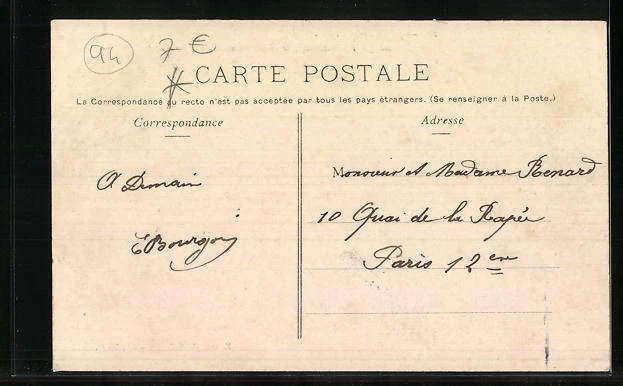 94
7 €
CARTE POSTALE
La Correspondance au recto n'est pas acceptée par tous les pays étrangers. (Se renseigner à la Poste.)
Correspondance
Adresse
A Demain
EBourgoi
Monsieur et Madame Renard
10 Quai de la Rapée
Paris 12 em